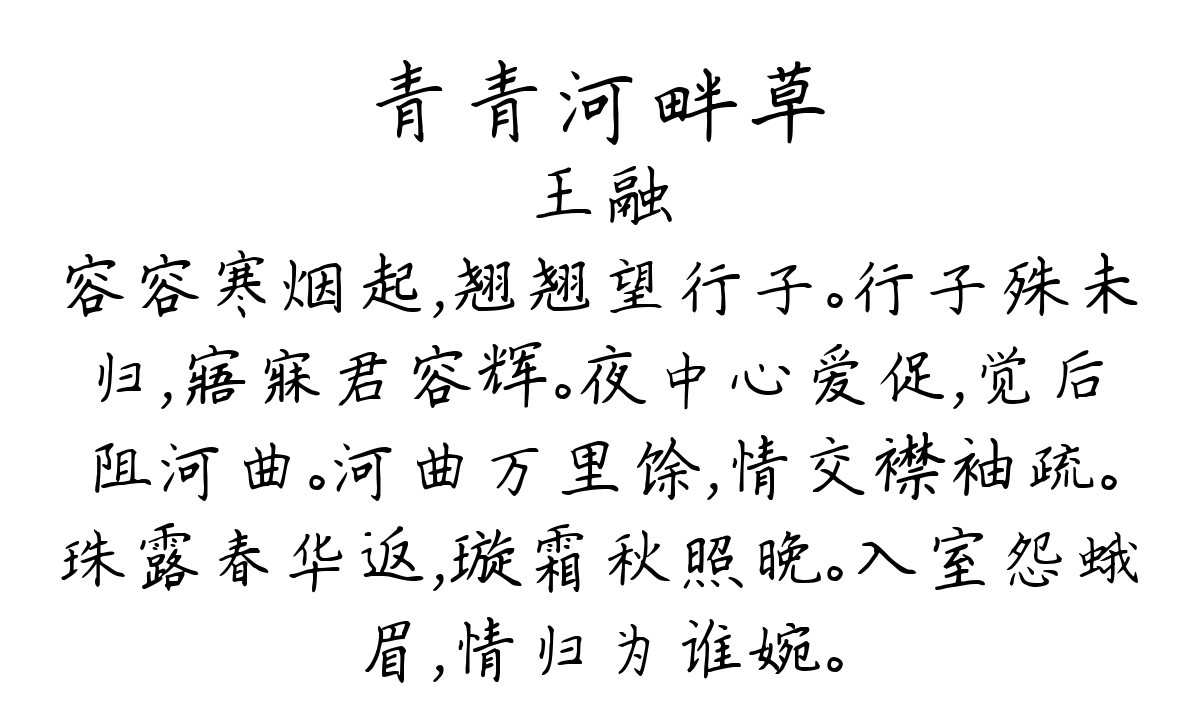 青青河畔草
王融
容容寒烟起,翘翘望行子。行子殊未
归,寤寐君容辉。夜中心爱促,觉后
阻河曲。河曲万里馀,情交襟袖疏。
珠露春华返,璇霜秋照晚。入室怨蛾
眉,情归为谁婉。